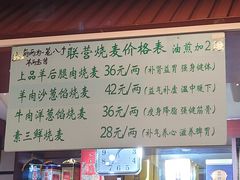 联营烧麦价格表 油煎加2
上品羊后腿肉烧麦 36元/两 (补肾益胃 强身健体)
羊肉沙葱馅烧麦 42元/两 (益气补虚 温中暖下)
牛肉洋葱馅烧麦 36元/两 (瘦身降脂 强健筋骨)
素三鲜烧麦 28元/两 (补气养心 滋养脾胃)